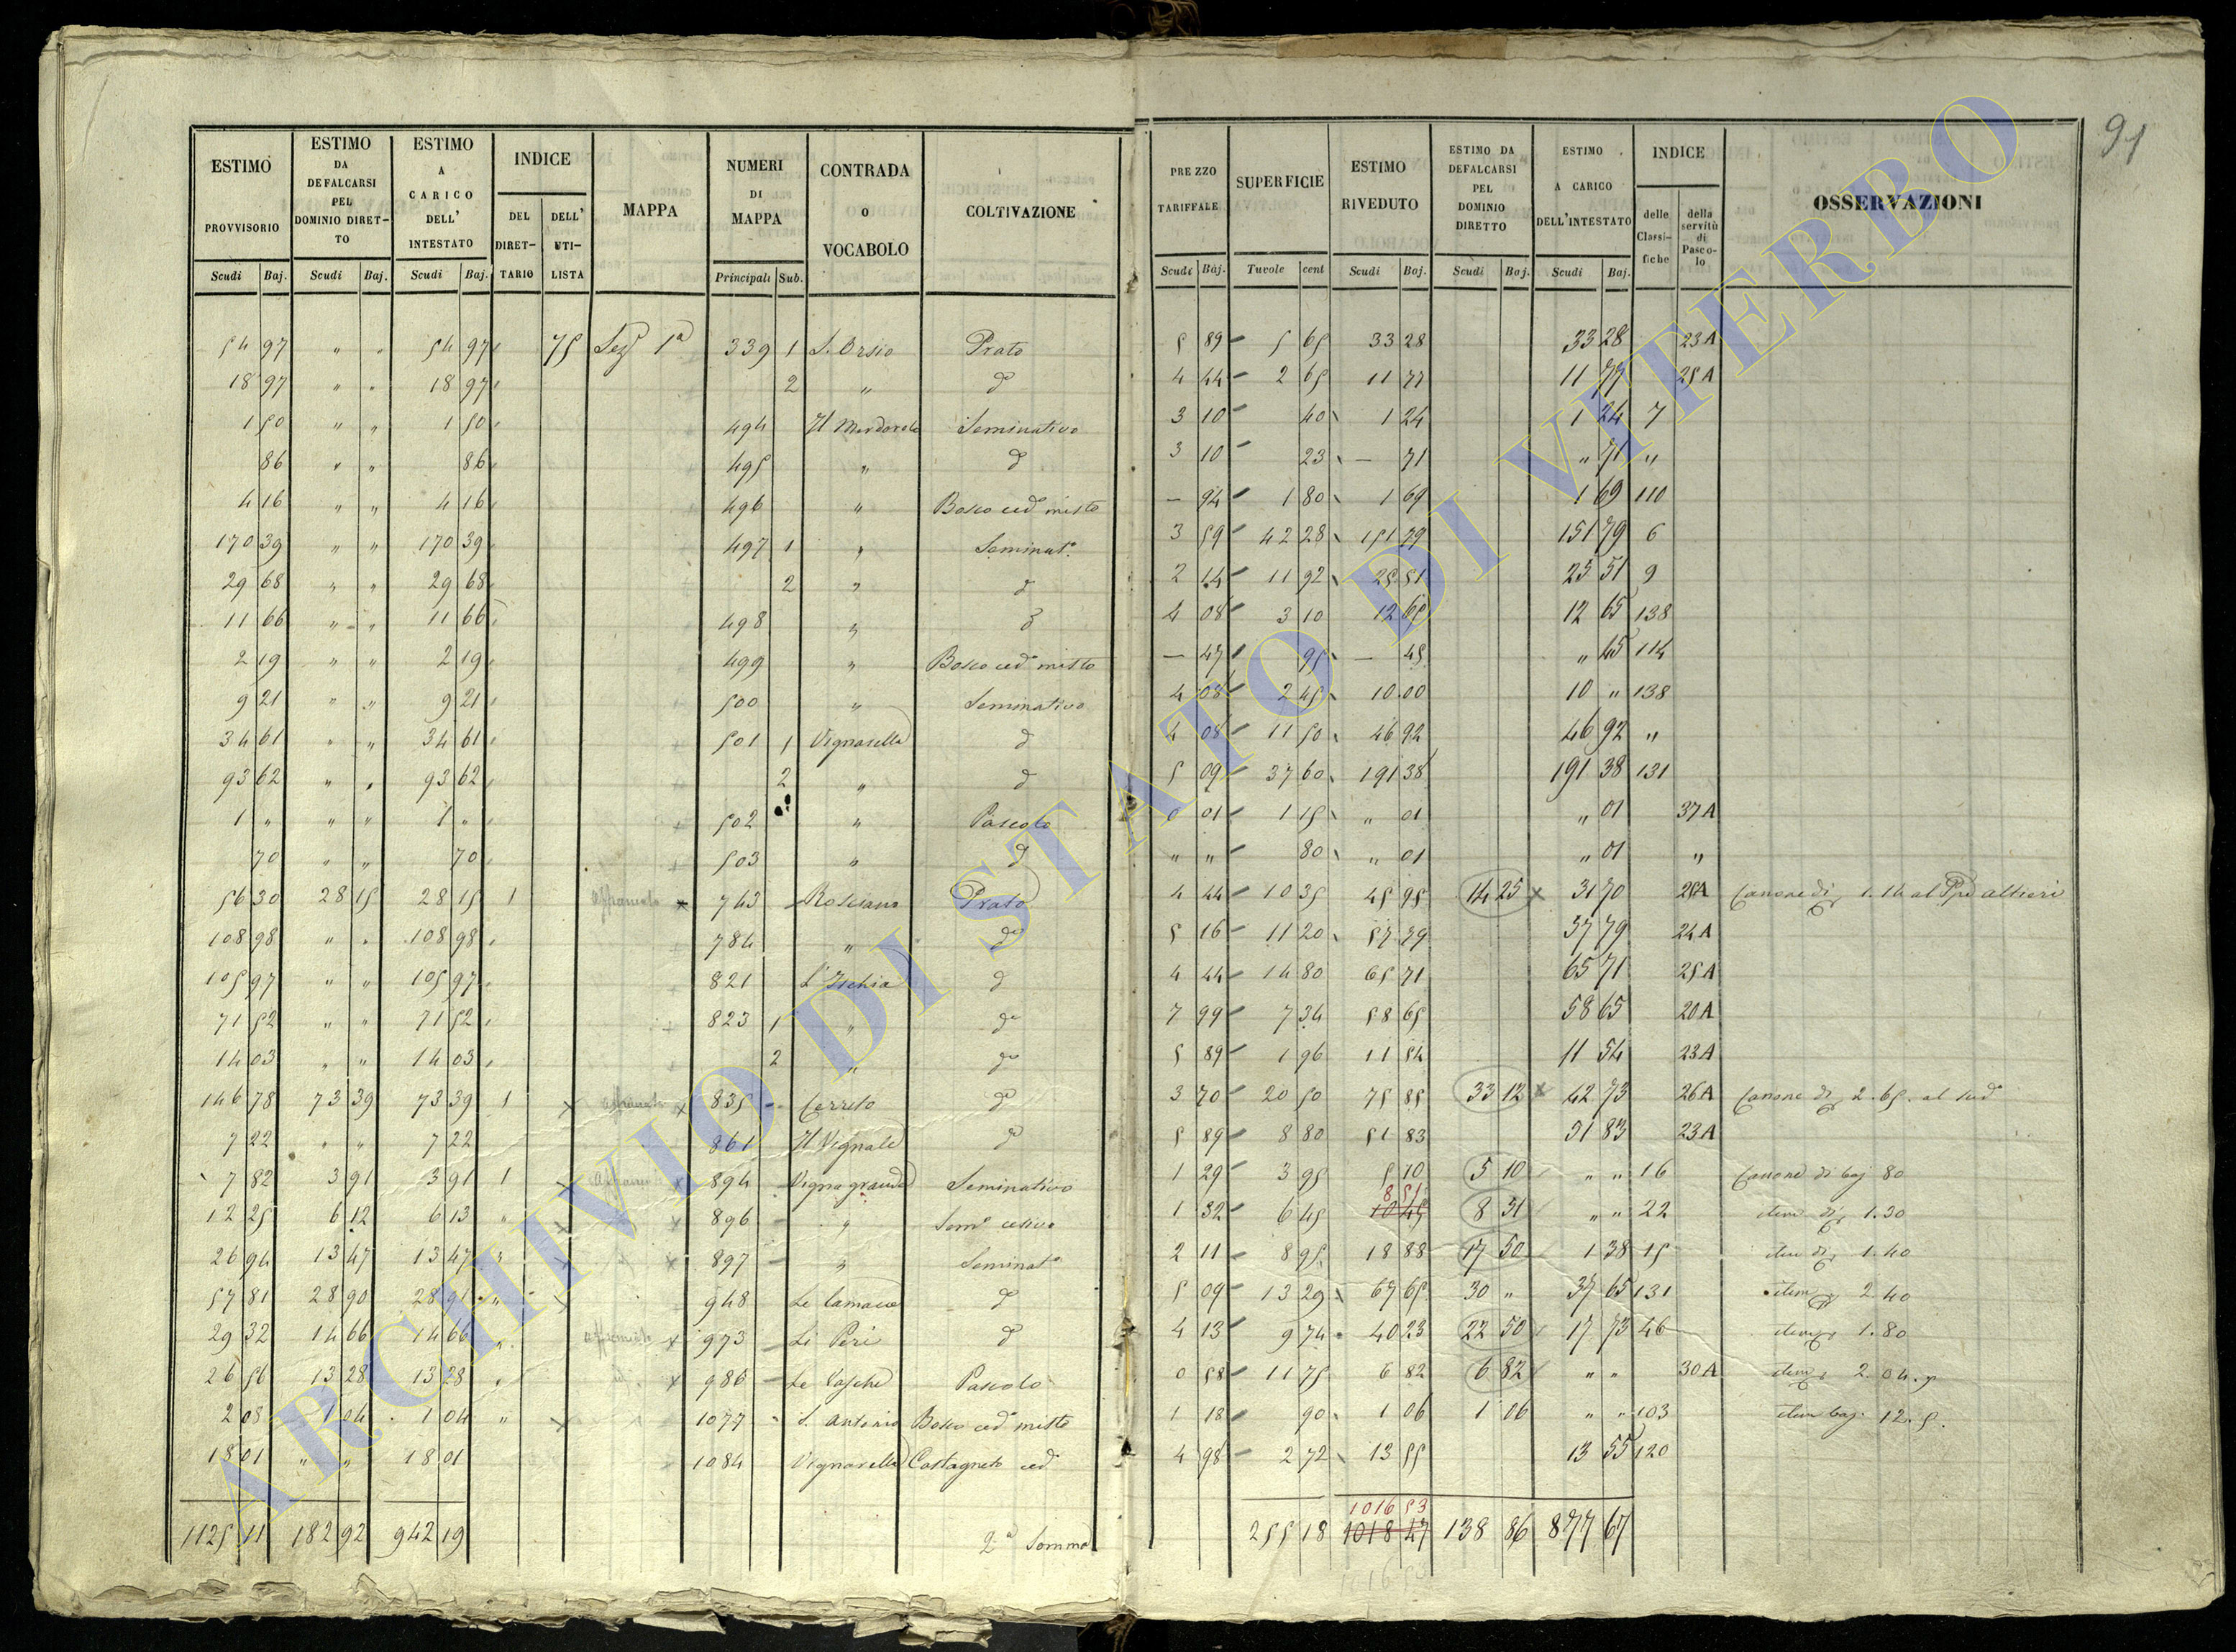 91
ESTIMO PROVVISORIO | ESTIMO DA DEFALCARSI PEL DOMINIO DIRETTO | ESTIMO A CARICO DELL' INTESTATO | INDICE DEL DIRETTARIO | DELL' UTILISTA | MAPPA | NUMERI DI MAPPA | CONTRADA O VOCABOLO | COLTIVAZIONE
Scudi | Baj. | Scudi | Baj. | Scudi | Baj. | Principali | Sub.
54 97 " " 54 97 75 Sez. 1a 339 1 S. Orsio Prato
18 97 " " 18 97 2 " d
1 50 " " 1 50 494 Seminativo
86 " " 86 495 " d
4 16 " " 4 16 496 " Bosco ced misto
170 39 " " 170 39 497 1 " Seminat.
29 68 " " 29 68 2 " d
11 66 " " 11 66 498 " d
2 19 " " 2 19 499 " Bosco ced misto
9 21 " " 9 21 500 " Seminativo
34 61 " " 34 61 501 1 Vignarella d
93 62 " " 93 62 2 " d
1 " " " 1 " 502 " Pascolo
70 " " 70 503 " d
56 30 28 15 28 15 1 affrancato 743 Rosciano Prato
108 98 " " 108 98 784 " d
105 97 " " 105 97 821 L'Ischia d
71 52 " " 71 52 823 1 " d
14 03 " " 14 03 2 " d
146 78 73 39 73 39 1 affrancato 835 Cerreto d
7 22 " " 7 22 861 Il Vignale d
7 82 3 91 3 91 1 894 Vigna grande Seminativo
12 25 6 12 6 13 " 896 "
26 94 13 47 13 47 " 897 " Seminat.
57 81 28 90 28 91 " 948 d
29 32 14 66 14 66 " 973 Li Peri d
26 56 13 28 13 28 " 986 Pascolo
2 08 1 04 1 04 " 1077 S. Antonio Bosco ced misto
18 01 " " 18 01 1084 Vignarella Castagneto ced
1125 11 182 92 942 19
2a Somma
PREZZO TARIFFALE | SUPERFICIE | ESTIMO RIVEDUTO | ESTIMO DA DEFALCARSI PEL DOMINIO DIRETTO | ESTIMO A CARICO DELL'INTESTATO | INDICE delle Classifiche | della servitù di Pascolo | OSSERVAZIONI
Scudi | Baj. | Tavole | cent | Scudi | Baj. | Scudi | Baj. | Scudi | Baj.
5 89 5 65 33 28 33 28 23A
4 44 2 65 11 77 11 77 25A
3 10 40 1 24 1 24 7
3 10 23 — 71 " 71 "
— 94 1 80 1 69 1 69 110
3 59 42 28 151 79 151 79 6
2 14 11 92 25 51 25 51 9
4 08 3 10 12 65 12 65 138
— 47 95 — 45 " 45 114
4 08 2 45 10 00 10 " 138
4 08 11 50 46 92 46 92 "
5 09 37 60 191 38 191 38 131
0 01 1 15 " 01 " 01 37A
" " 80 " 01 " 01 "
4 44 10 35 45 95 14 25 31 70 25A Canone di 1.14 al Altieri
5 16 11 20 57 79 57 79 24A
4 44 14 80 65 71 65 71 25A
7 99 7 34 58 65 58 65 20A
5 89 1 96 11 54 11 54 23A
3 70 20 50 75 85 33 12 42 73 26A Canone di 2.65. al sud
5 89 8 80 51 83 51 83 23A
1 29 3 95 5 10 5 10 " " 16 Canone di baj 80
1 32 6 45 8 51 10 45 8 51 " " 22 idem di 1.30
2 11 8 95 18 88 17 50 1 38 15 idem di 1.40
5 09 13 29 67 65 30 " 37 65 131 idem 2 40
4 13 9 74 40 23 22 50 17 73 46 idem 1.80
0 58 11 75 6 82 6 82 " " 30A idem 2.04.5
1 18 90 1 06 1 06 " " 103 idem baj. 12.5.
4 98 2 72 13 55 13 55 120
1016 53
255 18 1018 47 138 86 877 67
ARCHIVIO DI STATO DI VITERBO